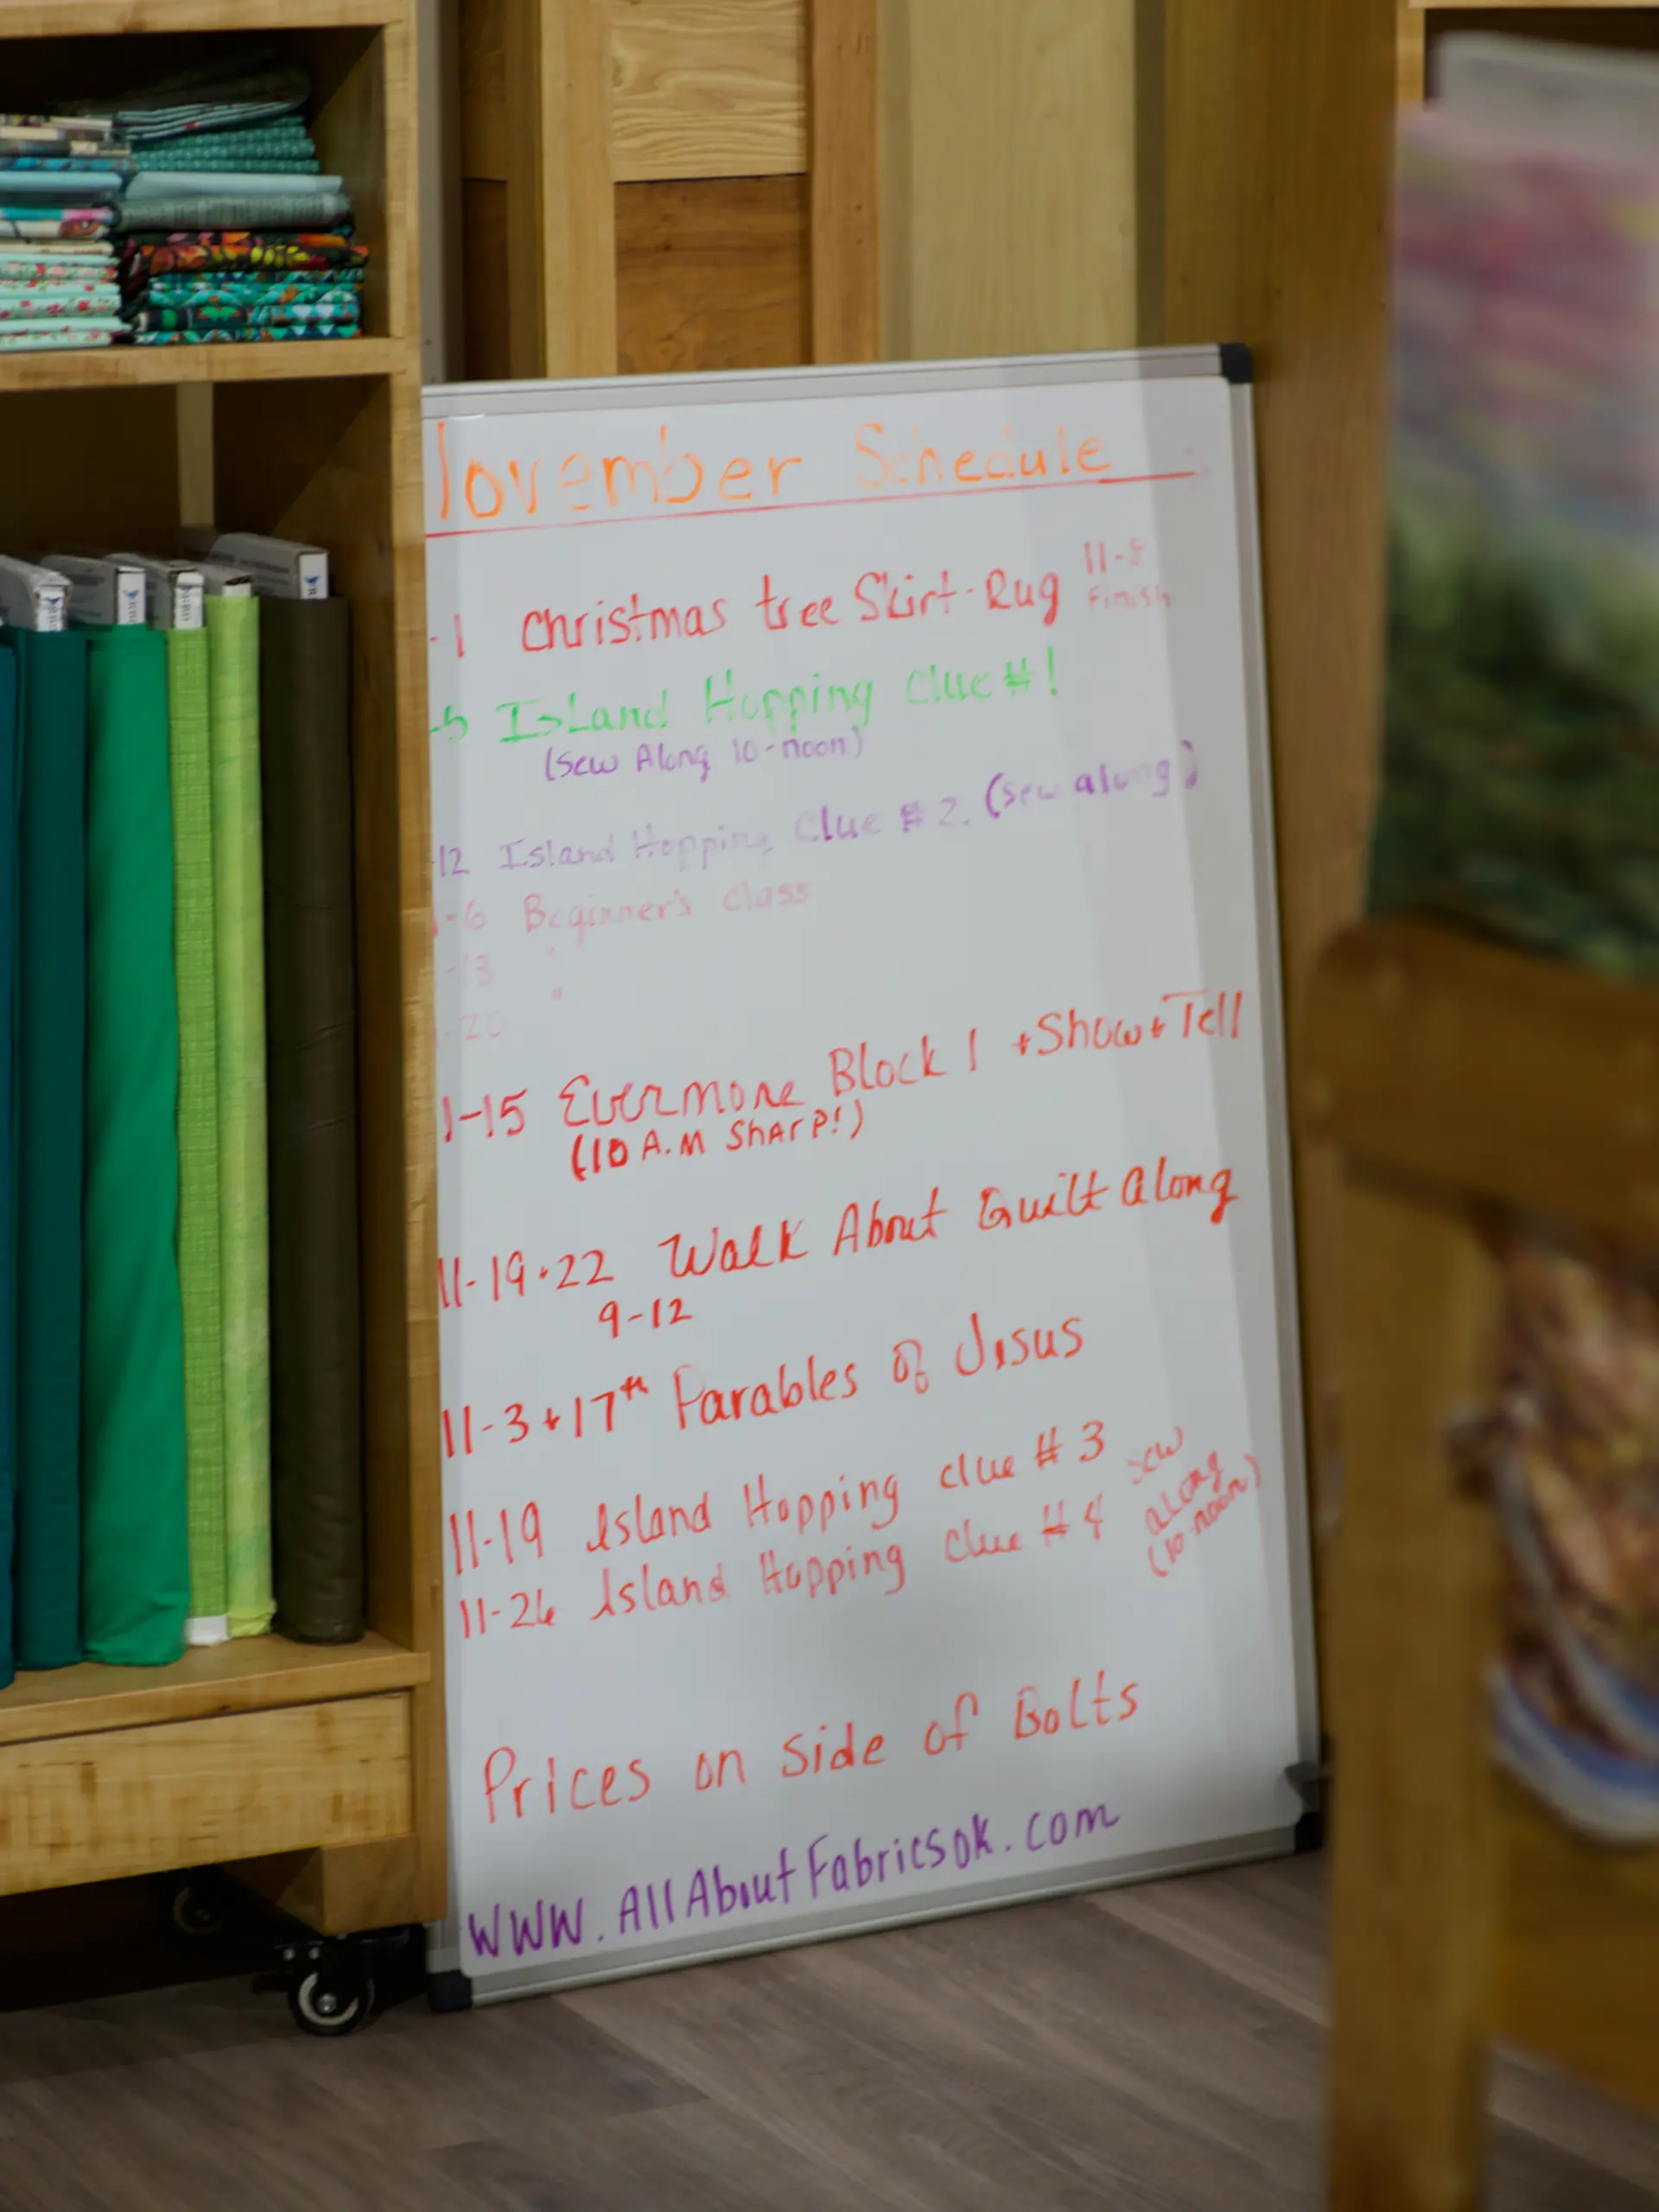 November Schedule
-1 Christmas tree Skirt-Rug 11-8
Finish
-5 Island Hopping Clue #1
(Sew Along 10-noon)
-12 Island Hopping Clue #2. (sew along)
1-6 Beginner's class
-13 "
-20 "
1-15 Evermore Block 1 + Show + Tell
(10 A.M Sharp!)
11-19+22 Walk About Quilt Along
9-12
11-3+17th Parables of Jesus
11-19 Island Hopping clue #3 sew
11-26 Island Hopping Clue #4 along
(10-noon)
Prices on side of Bolts
WWW.AllAboutFabricsok.com